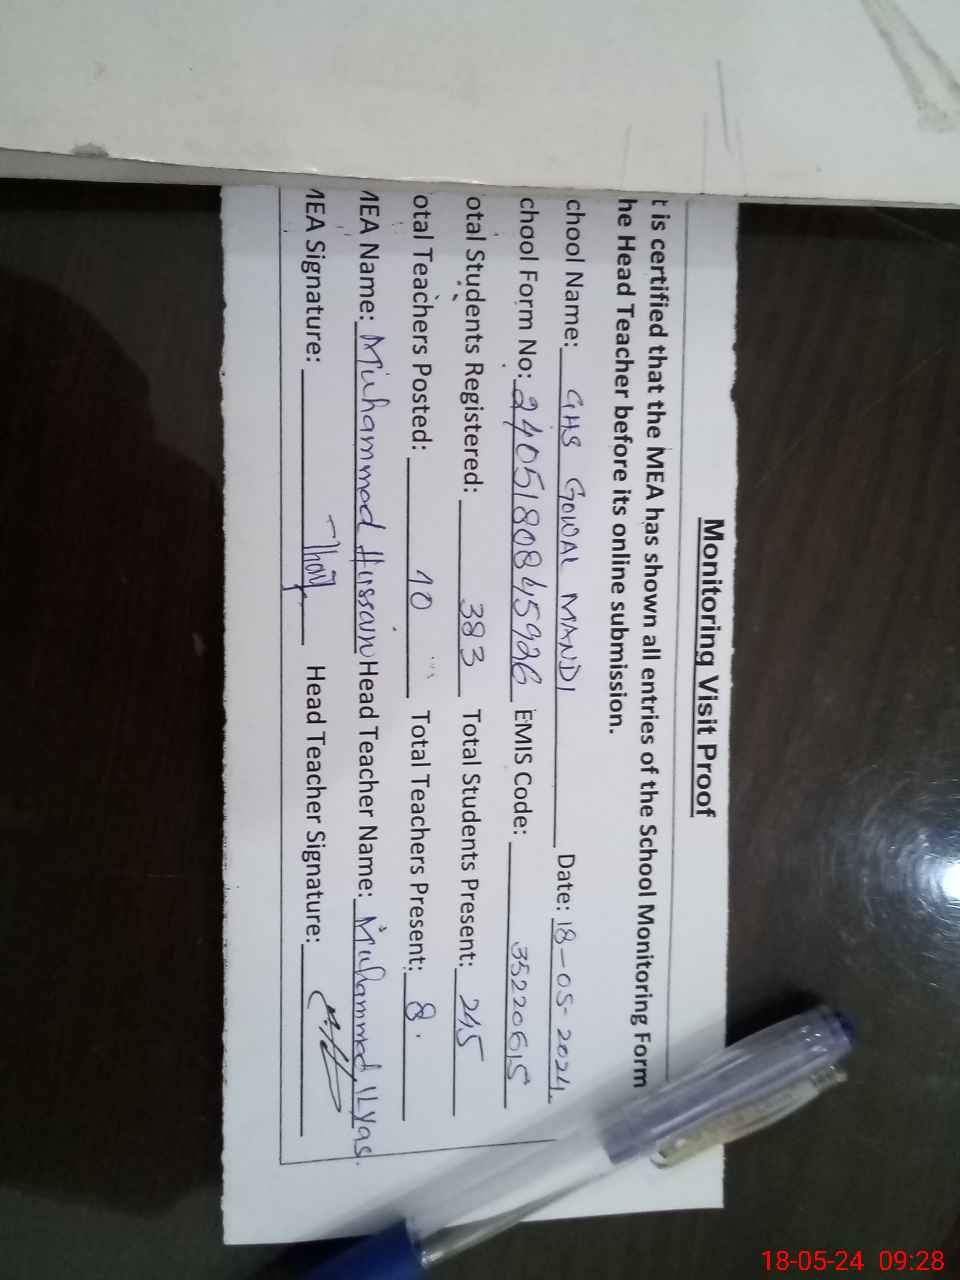 Monitoring Visit Proof
t is certified that the MEA has shown all entries of the School Monitoring Form
he Head Teacher before its online submission.
chool Name: GHS GOWAL MANDI Date: 18-05-2024
chool Form No: 2405180845926 EMIS Code: 35220615
otal Students Registered: 383 Total Students Present: 245
otal Teachers Posted: 10 Total Teachers Present: 8.
MEA Name: Muhammad Hussain Head Teacher Name: Muhammad ILyas.
MEA Signature: Head Teacher Signature:
18-05-24 09:28